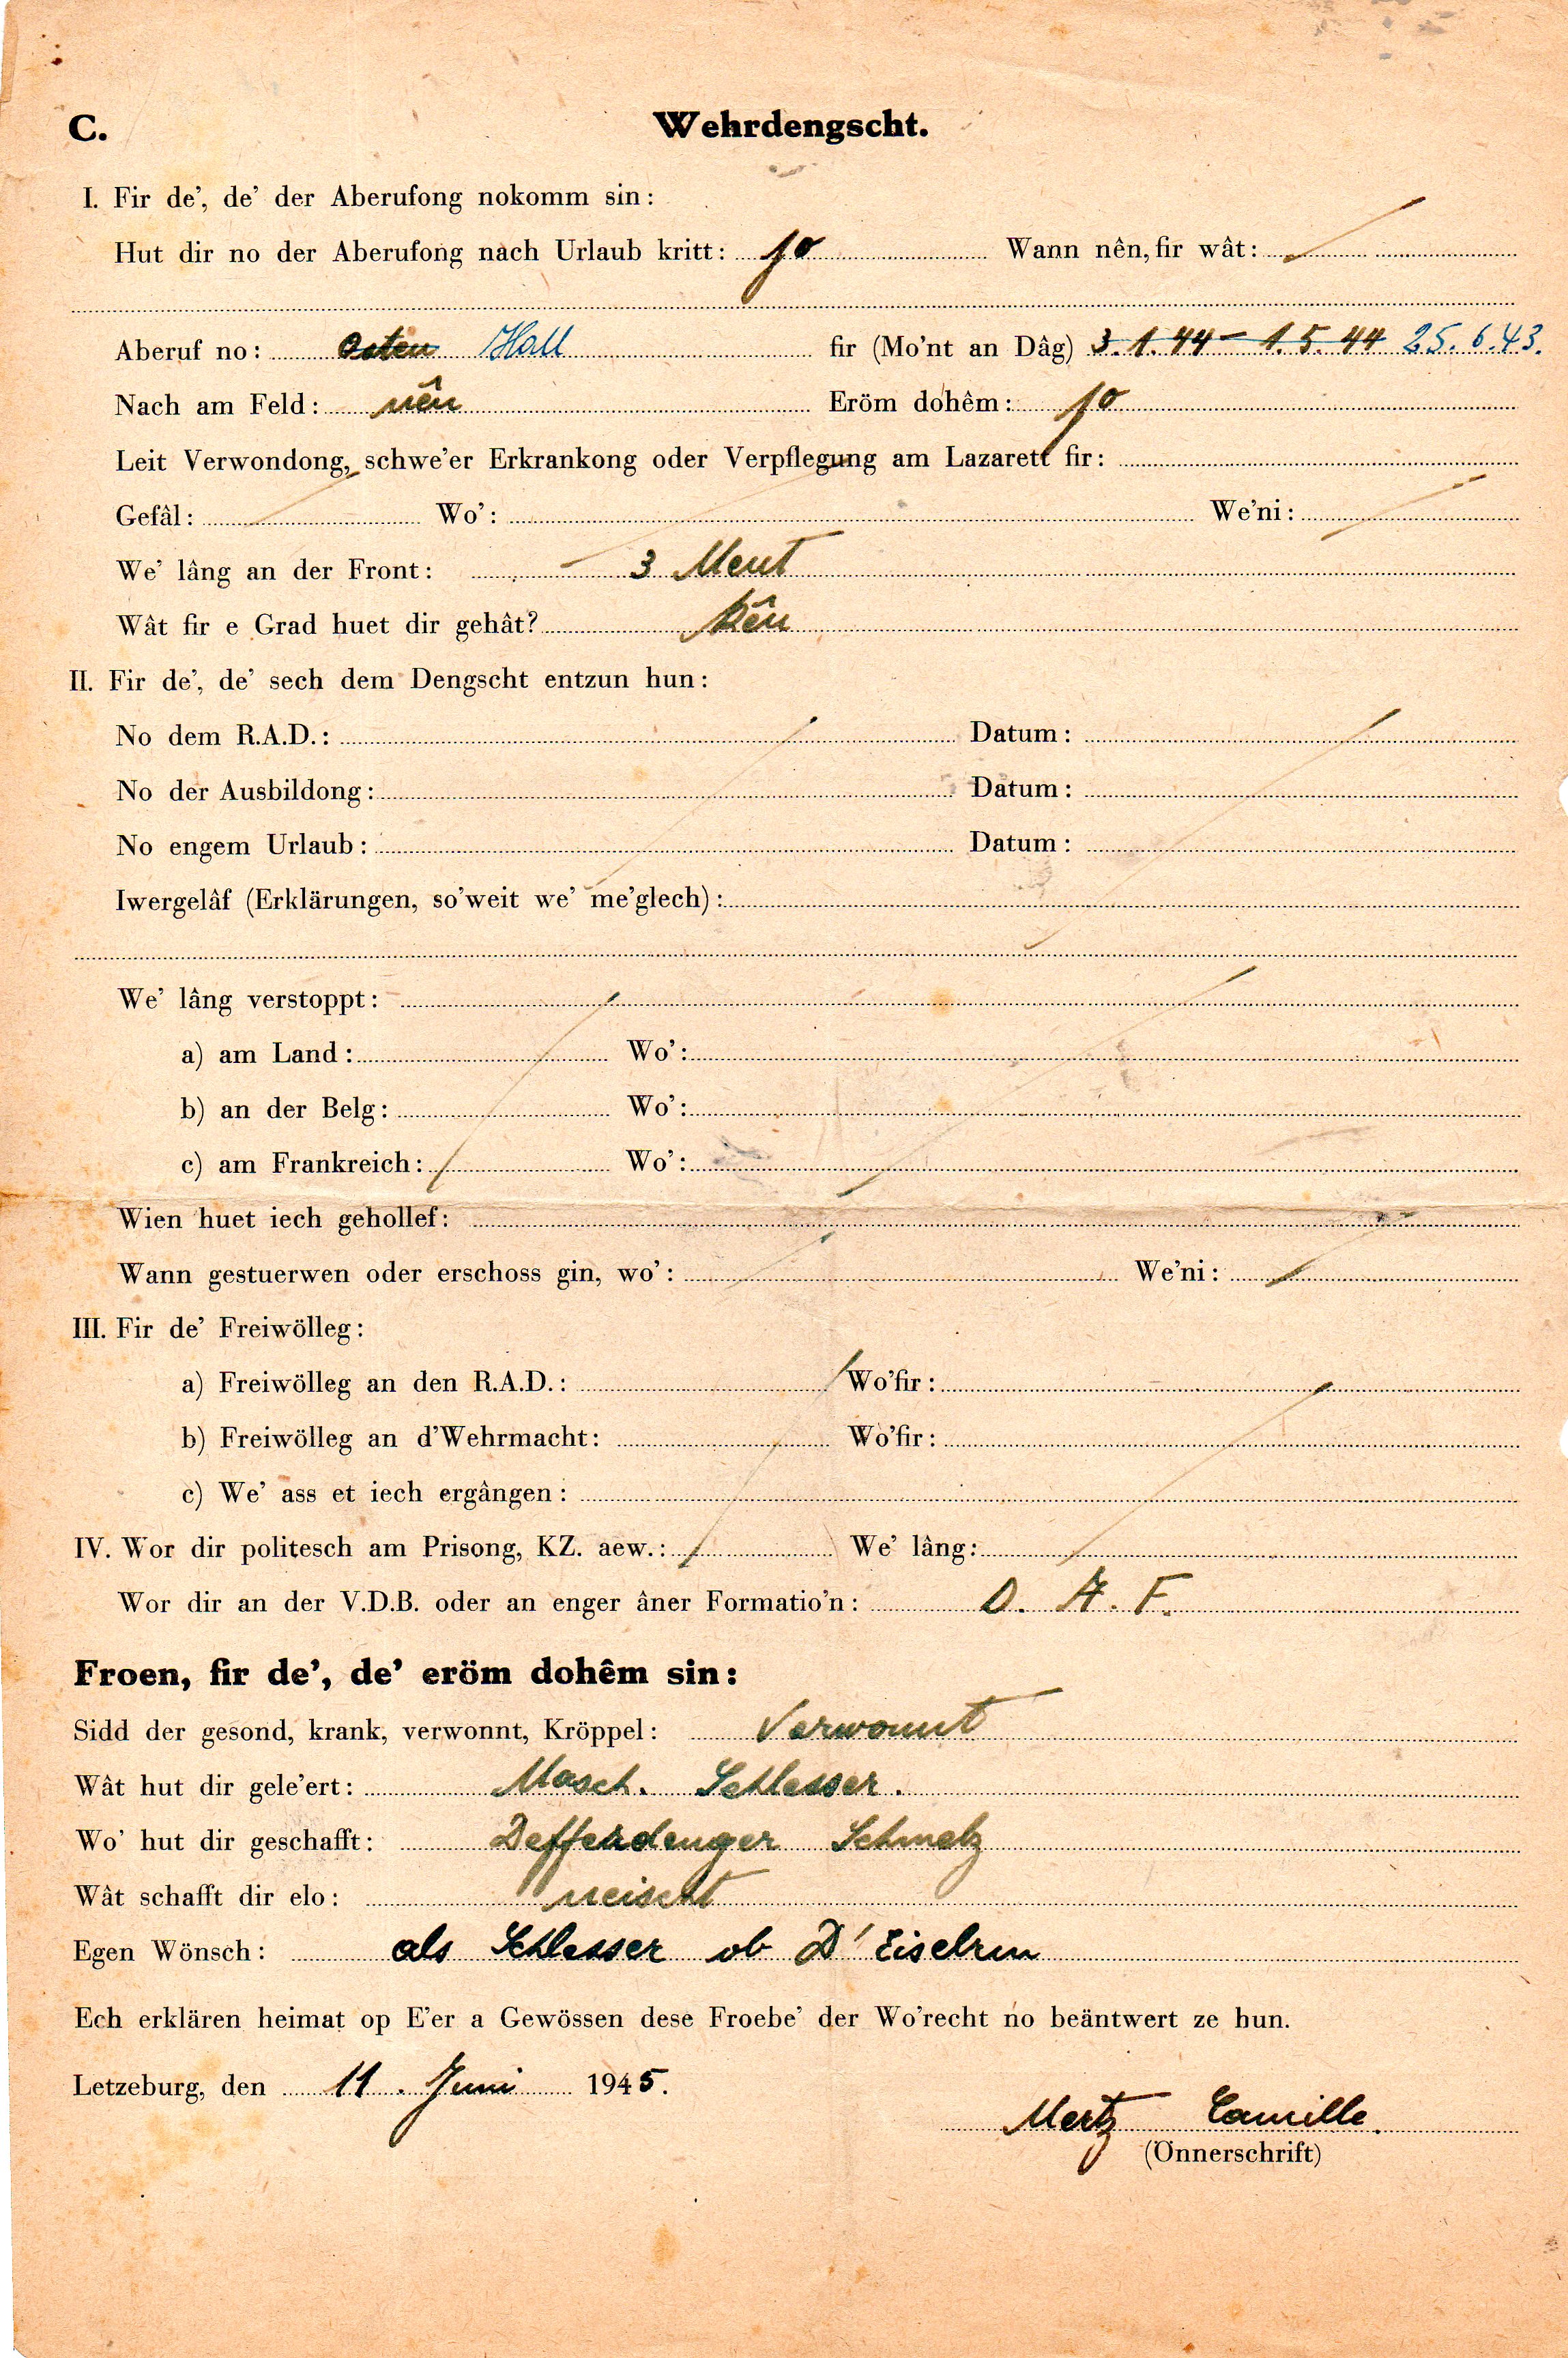 C. Wehrdengscht.
I. Fir de', de' der Aberufong nokomm sin:
Hut dir no der Aberufong nach Urlaub kritt: jo Wann nên, fir wât:
Aberuf no: Osten Hall fir (Mo'nt an Dâg) 3.1.44 - 1.5.44 25.6.43.
Nach am Feld: nên Eröm dohêm: jo
Leit Verwondong, schwe'er Erkrankong oder Verpflegung am Lazarett fir:
Gefâl: Wo': We'ni:
We' lâng an der Front: 3 Ment
Wât fir e Grad huet dir gehât? Kên
II. Fir de', de' sech dem Dengscht entzun hun:
No dem R.A.D.: Datum:
No der Ausbildong: Datum:
No engem Urlaub: Datum:
Iwergelâf (Erklärungen, so'weit we' me'glech):
We' lâng verstoppt:
a) am Land: Wo':
b) an der Belg: Wo':
c) am Frankreich: Wo':
Wien huet iech gehollef:
Wann gestuerwen oder erschoss gin, wo': We'ni:
III. Fir de' Freiwölleg:
a) Freiwölleg an den R.A.D.: Wo'fir:
b) Freiwölleg an d'Wehrmacht: Wo'fir:
c) We' ass et iech ergângen:
IV. Wor dir politesch am Prisong, KZ. aew.: We' lâng:
Wor dir an der V.D.B. oder an enger âner Formatio'n: D. A. F.
Froen, fir de', de' eröm dohêm sin:
Sidd der gesond, krank, verwonnt, Kröppel: Verwonnt
Wât hut dir gele'ert: Masch. Schlesser.
Wo' hut dir geschafft: Defferdenger Schmelz
Wât schafft dir elo: neischt
Egen Wönsch: als Schlesser ob D' Eisebrun
Ech erklären heimat op E'er a Gewössen dese Froebe' der Wo'recht no beäntwert ze hun.
Letzeburg, den 11. Juni 1945.
Mertz Camille.
(Önnerschrift)